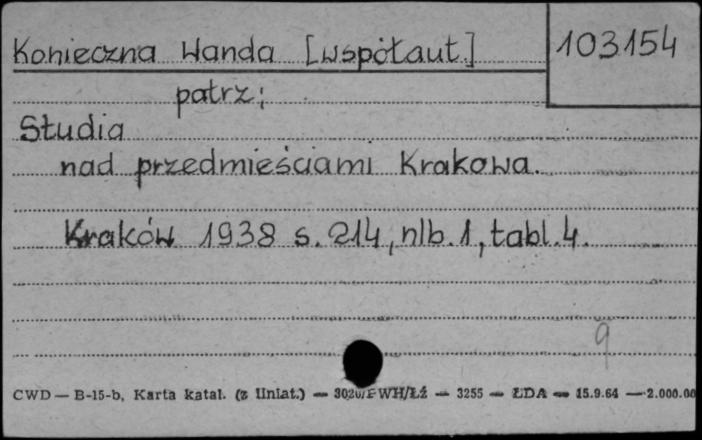 Konieczna Wanda [współaut.]
103154
patrz:
Studia
nad przedmieściami Krakowa.
Kraków 1938 s. 214, nlb. 1, tabl. 4.
9
CWD — B-15-b, Karta katal. (z liniat.) — WH/Łź — 3255 — ŁDA — 15.9.64 — 2.000.00